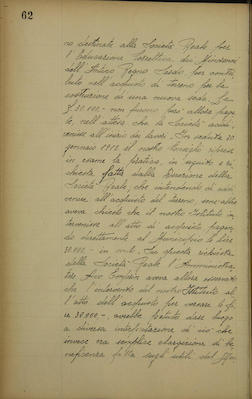 62
no destinate alla Società Reale per
l'Educazione Correttiva dei Minorenni
dell'Antico Regno Sardo per contri-
buto nell'acquisto di terreno per la
costruzione di una nuova sede. Le
£ 30.000,- non furono però allora paga
te, nell'attesa che la Società addi
venisse all'inizio dei lavori. In seduta 30
gennaio 1912 il nostro Consiglio riprese
in esame la pratica, in seguito a ri
chiesta fatta dalla Direzione della
Società Reale, che intendendo di addi
venire all'acquisto del terreno, sino allora
aveva chiesto che il nostro Istituto in
tervenisse all'atto di acquisto pagan
do direttamente al Municipio le lire
30.000,- in conto. La richiesta
della Società Reale l'Amministra
tore Avv. aveva allora osservato
che l'intervento del nostro Istituto al
l'atto dell'acquisto per versare le li
re 30.000,-, avrebbe potuto dare luogo
a diversa interpretazione di ciò che
invece era semplice elargizione di be
neficenza fatta sugli utili del